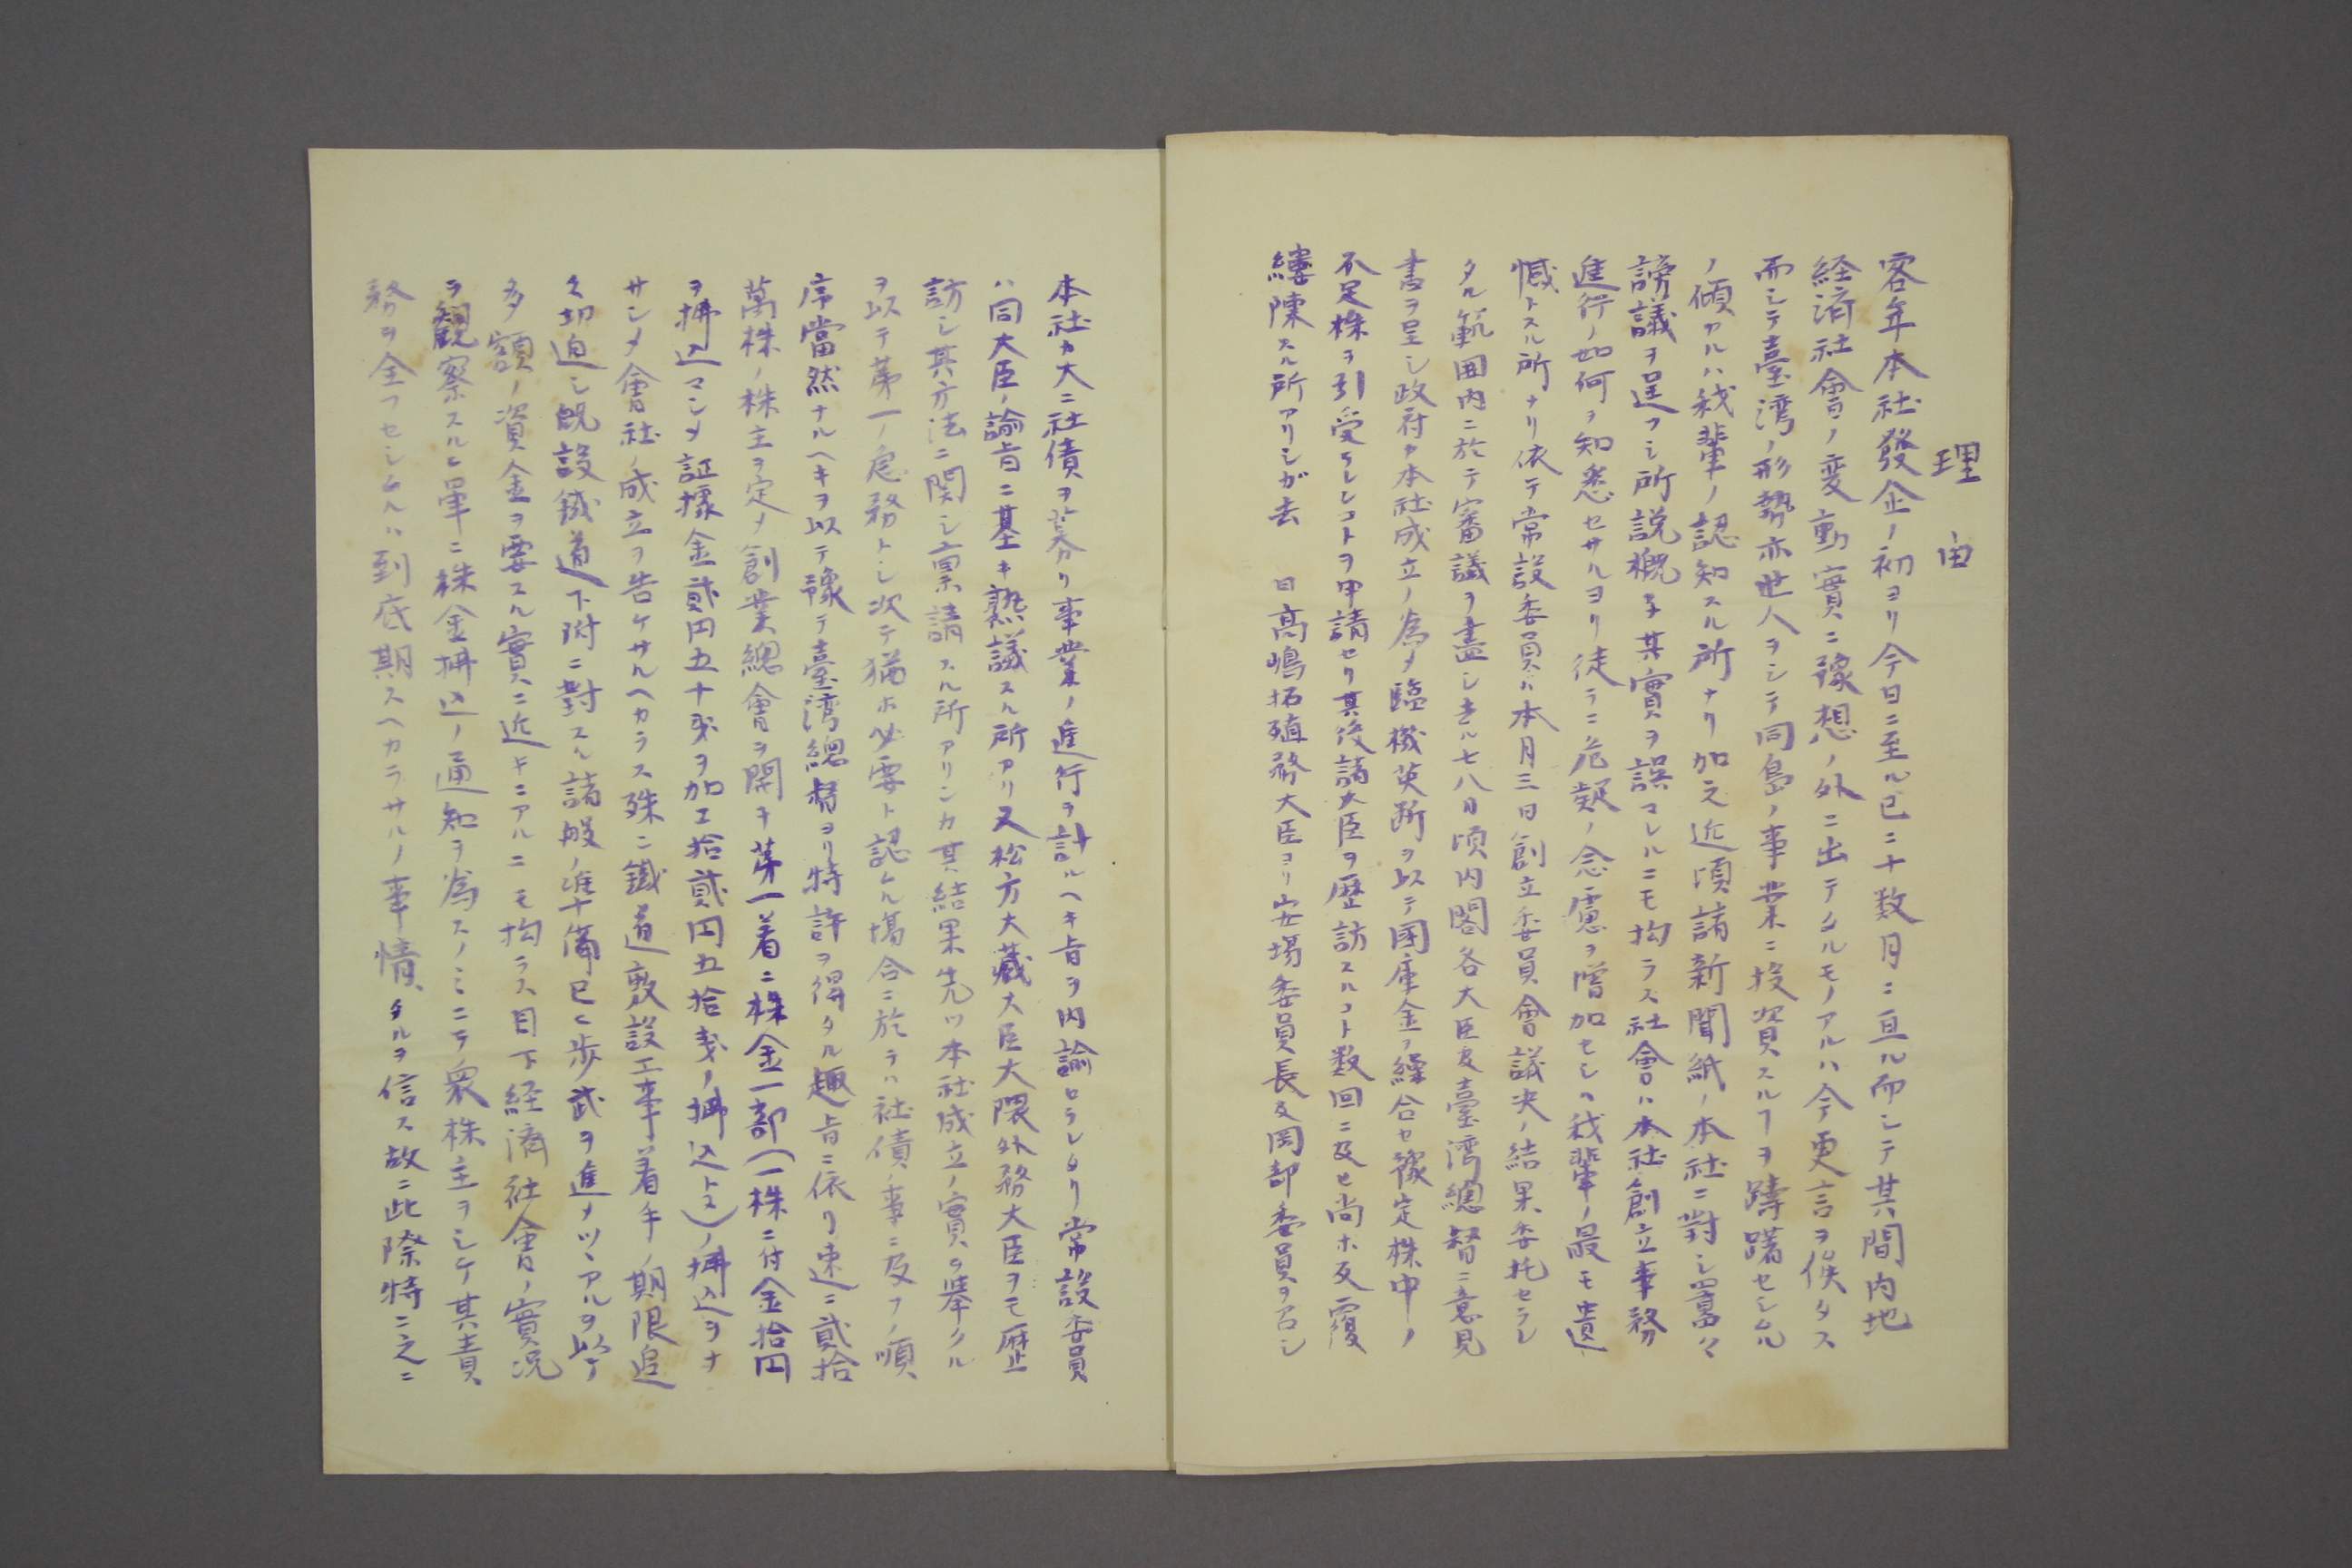 理由
客年本社發企ノ初ヨリ今日ニ至ル已ニ十数月ニ亘ル而シテ其間内地
経済社會ノ変動實ニ豫想ノ外ニ出テタルモノアルハ今更言ヲ俟タス
而シテ臺湾ノ形勢亦世人ヲシテ同島ノ事業ニ投資スルヿヲ躊躇セシムル
ノ傾アルハ我輩ノ認知スル所ナリ加之近頃諸新聞紙ノ本社ニ對シ囂々
謗議ヲ逞フシ所説概子其實ヲ誤マレルニモ拘ラス社會ハ本社創立事務
進行ノ如何ヲ知悉セサルヨリ徒ラニ危疑ノ念慮ヲ増加セシハ我輩ノ最モ遺
憾トスル所ナリ依テ常設委員ハ本月三日創立委員會議决ノ結果委托セラレ
タル範囲内ニ於テ審議ヲ盡シ去ル七八日頃内閣各大臣及臺湾總督ニ意見
書ヲ呈シ政府カ本社成立ノ為メ臨機英断ヲ以テ国庫金ヲ繰合セ豫定株中ノ
不足株ヲ引受ラレンコトヲ申請セリ其後諸大臣ヲ歴訪スルコト数回ニ及ヒ尚ホ反覆
縷陳スル所アリシガ去　日高嶋拓殖務大臣ヨリ安場委員長及岡部委員ヲ召シ
本社カ大ニ社債ヲ募リ事業ノ進行ヲ計ルヘキ旨ヲ内諭セラレタリ常設委員
ハ同大臣ノ諭旨ニ基キ熟議スル所アリ又松方大藏大臣大隈外務大臣ヲモ歴
訪シ其方法ニ関シ稟請スル所アリシカ其結果先ツ本社成立ノ實ヲ挙クル
ヲ以テ第一ノ急務トシ次テ猶ホ必要ト認ムル場合ニ於テハ社債ノ事ニ及フノ順
序當然ナルヘキヲ以テ豫テ臺湾總督ヨリ特許ヲ得タル趣旨ニ依リ速ニ貳拾
萬株ノ株主ヲ定メ創業總會ヲ開キ第一着ニ株金一部(一株ニ付金拾円
ヲ拂込マシメ証據金貳円五十戔ヲ加エ拾貳円五拾戔ノ拂込トス)ノ拂込ヲナ
サシメ會社ノ成立ヲ告ケサルヘカラス殊ニ鐵道敷設工事着手ノ期限追
々切迫シ既設鐵道下附ニ對スル諸般ノ準備已ニ歩武ヲ進メツヽアルヲ以テ
多額ノ資金ヲ要スル實ニ近キニアルニモ拘ラス目下経済社會ノ實况
ヲ觀察スルト単ニ株金拂込ノ通知ヲ為スノミニテ衆株主ヲシテ其責
務ヲ全フセシムルハ到底期スヘカラサルノ事情タルヲ信ス故ニ此際特ニ之ニ